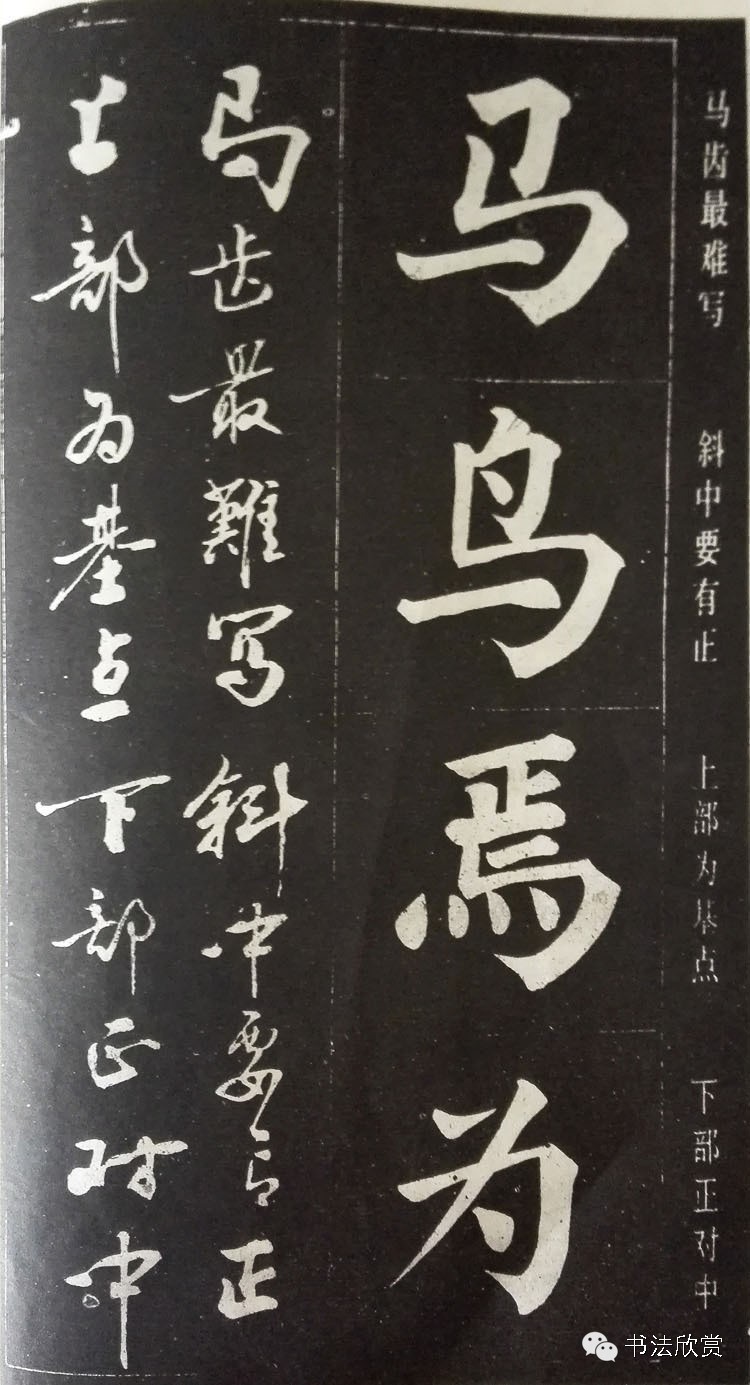 马齿最难写 斜中要有正 上部为基点 下部正对中
马鸟焉为
马齿最難写斜中要有正
上部为基点下部正对中
书法欣赏